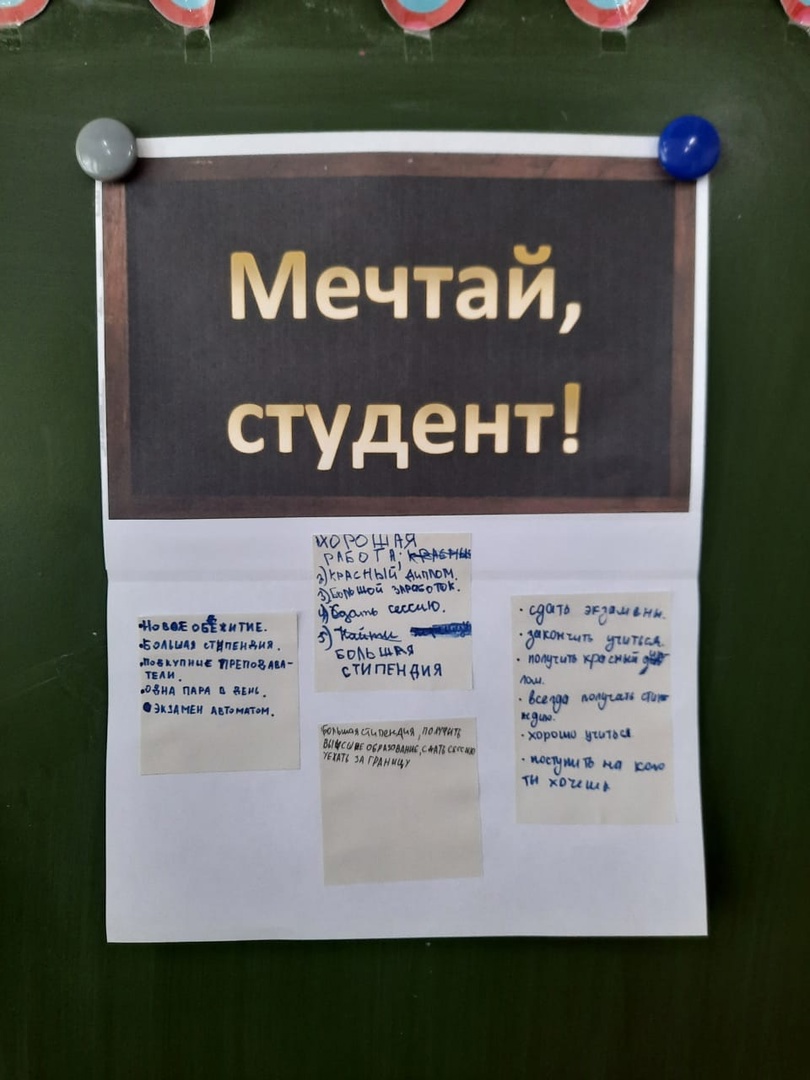 Мечтай,
студент!
ХОРОШАЯ
РАБОТА;
2) КРАСНЫЙ ДИПЛОМ.
3) БОЛЬШОЙ ЗАРАБОТОК.
4) Сдать сессию.
5) Найти
БОЛЬШАЯ
СТИПЕНДИЯ
•НОВОЕ ОБЕЖИТИЕ.
•БОЛЬШАЯ СТИПЕНДИЯ.
•ПОВКУПНЫЕ ПРЕПОДАВА-
ТЕЛИ.
•ОДНА ПАРА В ДЕНЬ.
•ЭКЗАМЕН АВТОМАТОМ.
Большая стипендия, получить
ВЫСШЕЕ ОБРАЗОВАНИЕ, СДАТЬ СЕССИЮ
УЕХАТЬ ЗА ГРАНИЦУ
• сдать экзамены.
• закончить учиться.
• получить красный дип
лом.
• всегда получать стипе
ндию.
• хорошо учиться
• поступить на кого
ты хочешь